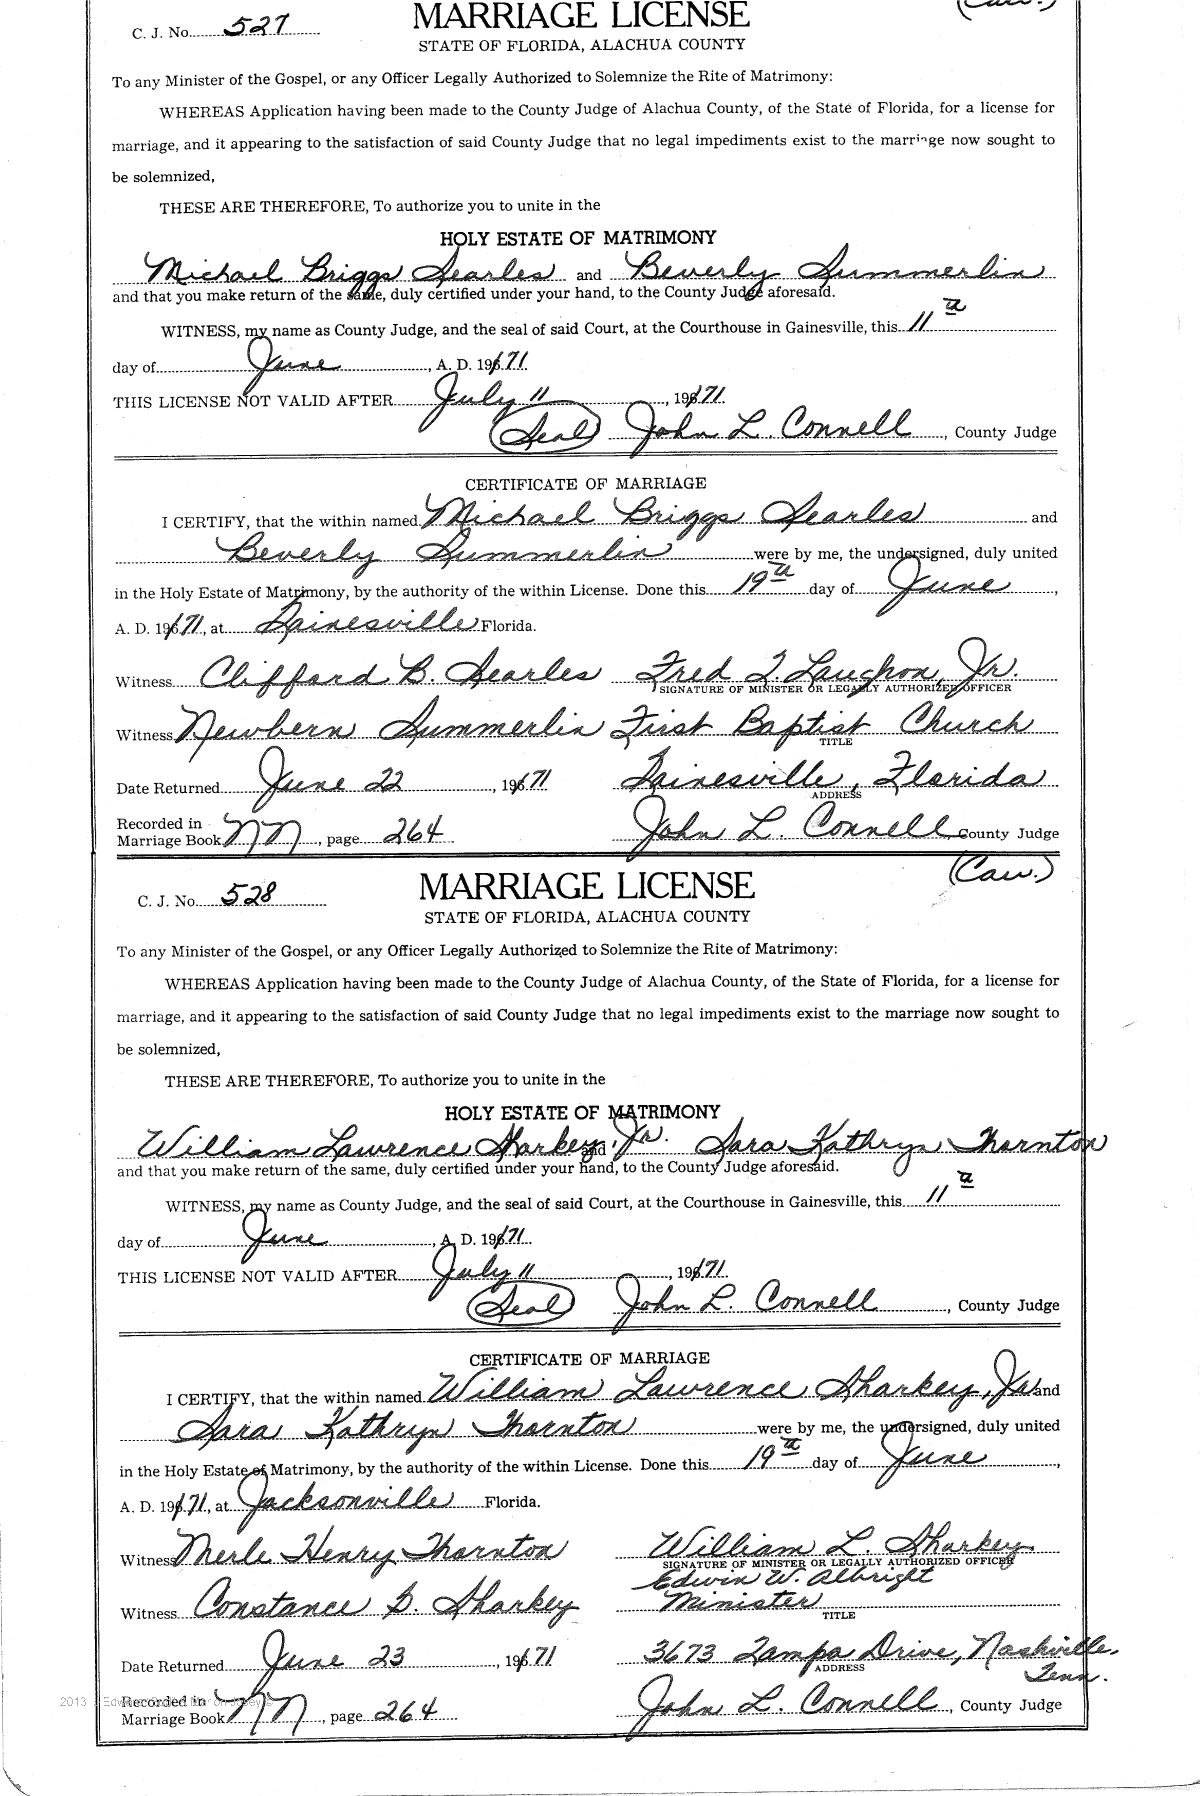 (Cau.)
C. J. No. 527 MARRIAGE LICENSE
STATE OF FLORIDA, ALACHUA COUNTY
To any Minister of the Gospel, or any Officer Legally Authorized to Solemnize the Rite of Matrimony:
WHEREAS Application having been made to the County Judge of Alachua County, of the State of Florida, for a license for
marriage, and it appearing to the satisfaction of said County Judge that no legal impediments exist to the marriage now sought to
be solemnized,
THESE ARE THEREFORE, To authorize you to unite in the
HOLY ESTATE OF MATRIMONY
Michael Briggs Searles and Beverly Summerlin
and that you make return of the same, duly certified under your hand, to the County Judge aforesaid.
WITNESS, my name as County Judge, and the seal of said Court, at the Courthouse in Gainesville, this 11th
day of June, A. D. 1971
THIS LICENSE NOT VALID AFTER July 11, 1971
(Seal) John L. Connell, County Judge
CERTIFICATE OF MARRIAGE
I CERTIFY, that the within named Michael Briggs Searles and
Beverly Summerlin were by me, the undersigned, duly united
in the Holy Estate of Matrimony, by the authority of the within License. Done this 19th day of June,
A. D. 1971, at Gainesville Florida.
Witness Clifford B. Searles Fred T. Laughon, Jr.
SIGNATURE OF MINISTER OR LEGALLY AUTHORIZED OFFICER
Witness Newbern Summerlin First Baptist Church
TITLE
Date Returned June 22, 1971 Gainesville, Florida
ADDRESS
Recorded in
Marriage Book NN, page 264 John L. Connell County Judge
(Cau.)
C. J. No. 528 MARRIAGE LICENSE
STATE OF FLORIDA, ALACHUA COUNTY
To any Minister of the Gospel, or any Officer Legally Authorized to Solemnize the Rite of Matrimony:
WHEREAS Application having been made to the County Judge of Alachua County, of the State of Florida, for a license for
marriage, and it appearing to the satisfaction of said County Judge that no legal impediments exist to the marriage now sought to
be solemnized,
THESE ARE THEREFORE, To authorize you to unite in the
HOLY ESTATE OF MATRIMONY
William Lawrence Sharkey, Jr. and Sara Kathryn Thornton
and that you make return of the same, duly certified under your hand, to the County Judge aforesaid.
WITNESS, my name as County Judge, and the seal of said Court, at the Courthouse in Gainesville, this 11th
day of June, A. D. 1971
THIS LICENSE NOT VALID AFTER July 11, 1971
(Seal) John L. Connell, County Judge
CERTIFICATE OF MARRIAGE
I CERTIFY, that the within named William Lawrence Sharkey, Jr. and
Sara Kathryn Thornton were by me, the undersigned, duly united
in the Holy Estate of Matrimony, by the authority of the within License. Done this 19th day of June,
A. D. 1971, at Jacksonville Florida.
Witness Merle Henry Thornton William L. Sharkey
SIGNATURE OF MINISTER OR LEGALLY AUTHORIZED OFFICER
Edwin W. Albright
Witness Constance B. Sharkey Minister
TITLE
Date Returned June 23, 1971 3673 Tampa Drive, Nashville,
ADDRESS Tenn.
Recorded in
Marriage Book NN, page 264 John L. Connell, County Judge
2013